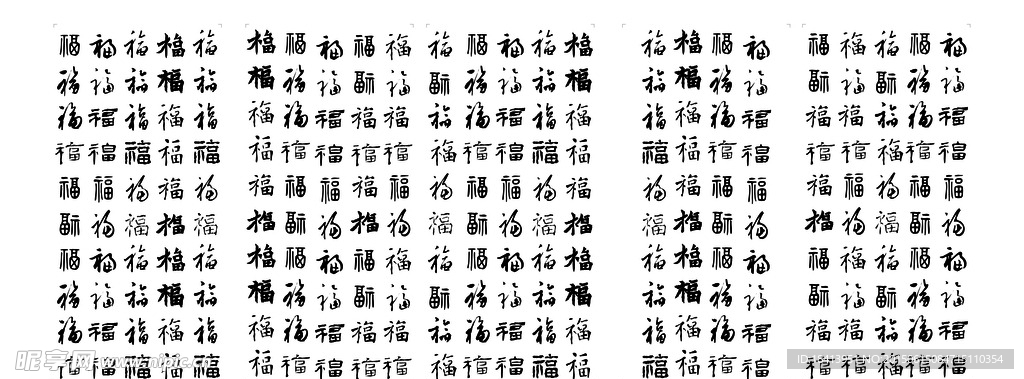 福福福福福 福福福福福 福福福福福 福福福福 福福福福福
福福福福福 福福福福福 福福福福福 福福福福 福福福福福
福福福福福 福福福福福 福福福福福 福福福福 福福福福福
福福福福福 福福福福福 福福福福福 福福福福 福福福福福
福福福福福 福福福福福 福福福福福 福福福福 福福福福福
福福福福福 福福福福福 福福福福福 福福福福 福福福福福
福福福福福 福福福福福 福福福福福 福福福福 福福福福福
福福福福福 福福福福福 福福福福福 福福福福 福福福福福
福福福福福 福福福福福 福福福福福 福福福福 福福福福福
福福福福福 福福福福福 福福福福福 福福福福 福福福福福
昵享网 www.nipic.cn